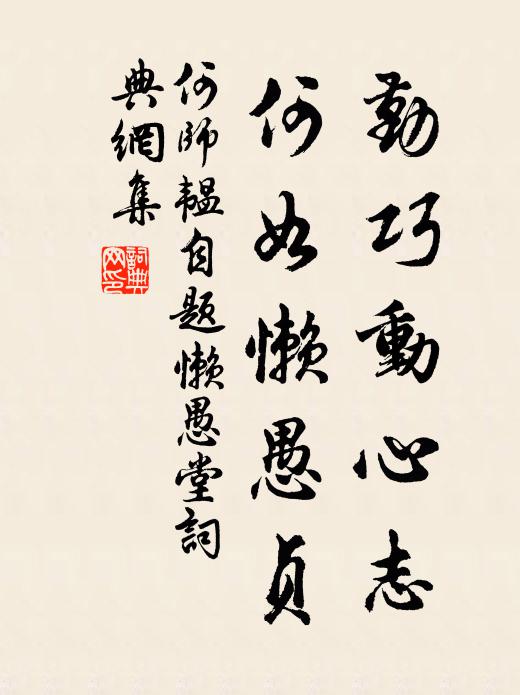 勤巧動心志
何如懶愚貞
何師韞自題懶愚堂詞
典網集
詞典
网印